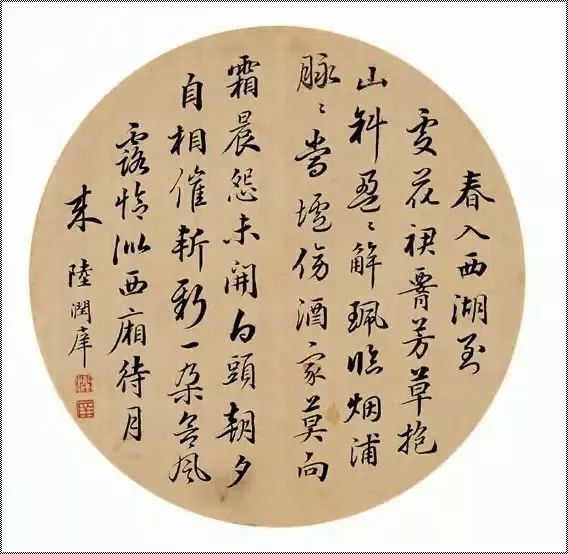 春入西湖到
處花裙腰芳草抱
山斜盈〻解珮臨烟浦
脉〻當壚傍酒家莫向
霜晨怨未開白頭朝夕
自相催斬新一朶含風
露恰似西廂待月
來 陸潤庠